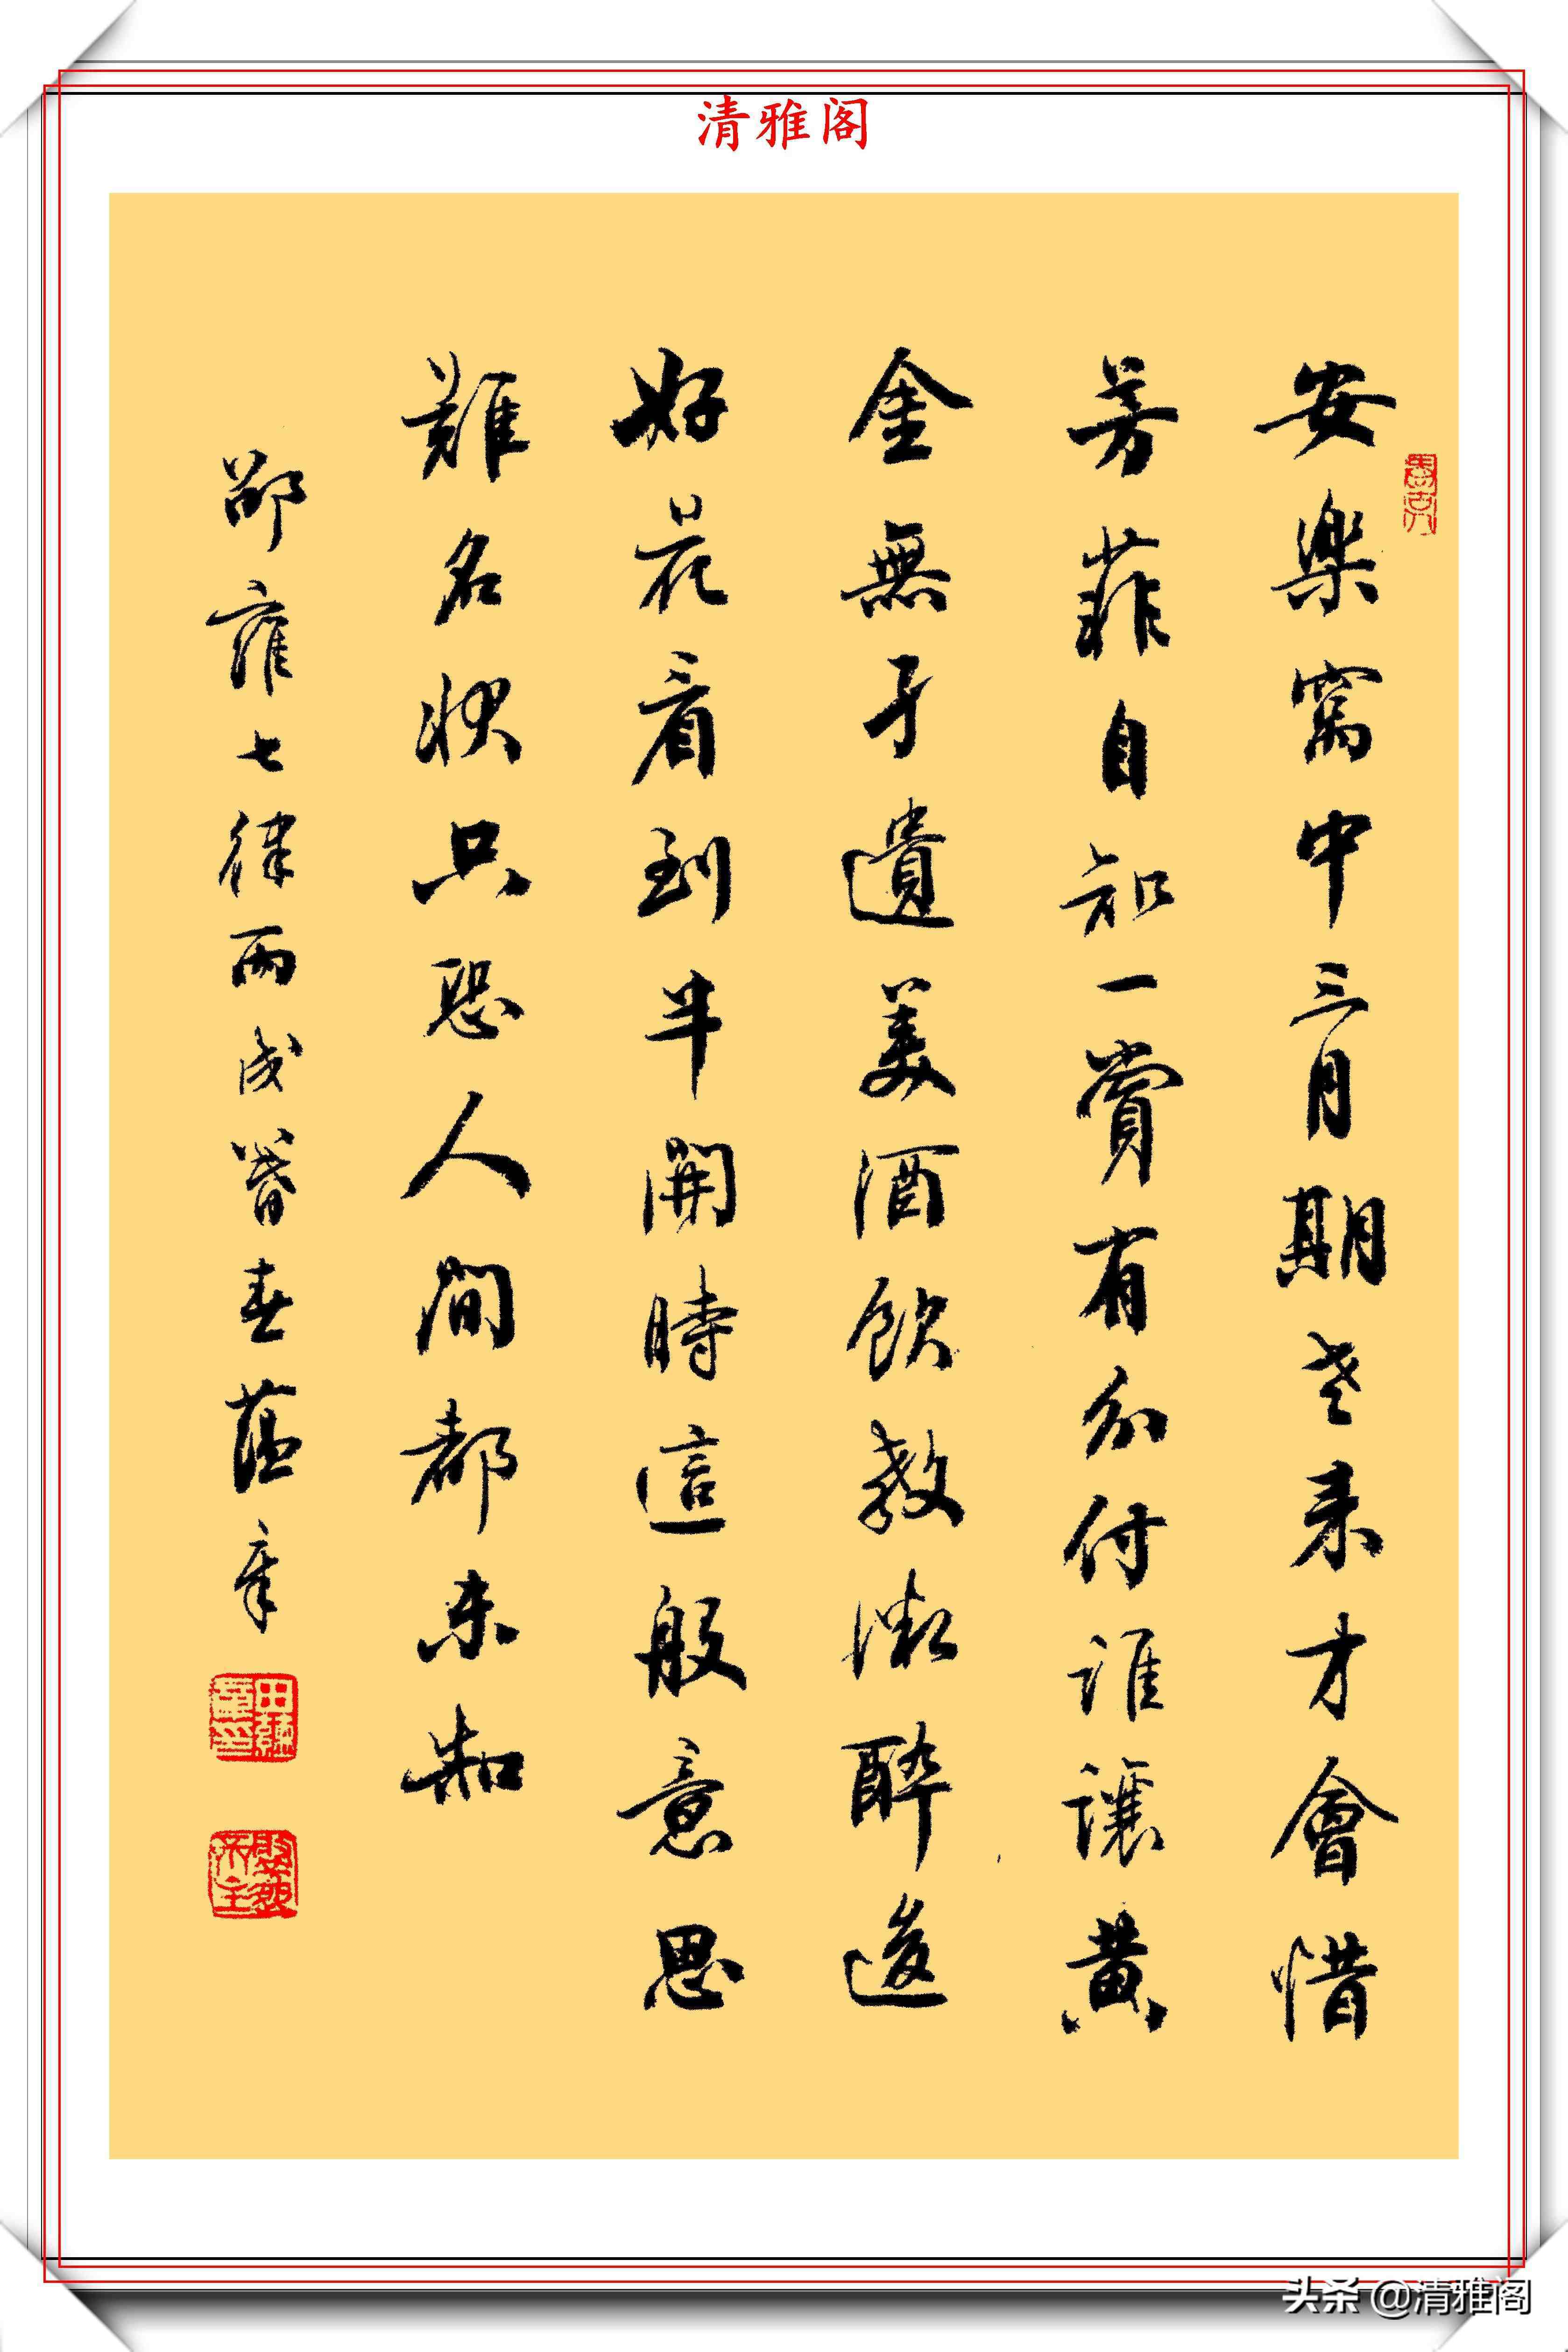 清雅阁
安楽窩中三月期老来才會惜
芳菲自知一賞有分付誰讓黄
金無孑遺美酒飲教微醉後
好花看到半開時這般意思
難名狀只恐人間都未知
邵雍七律丙戌暮春蘊章
田蘊章印
头条 @清雅阁